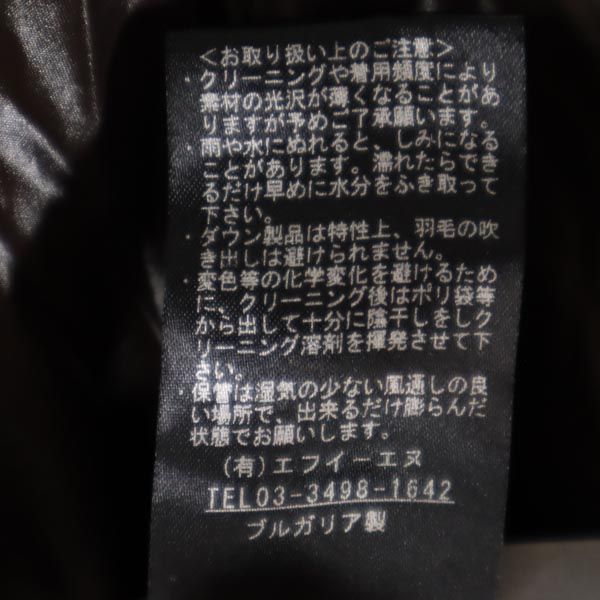 <お取り扱い上のご注意>
・クリーニングや着用頻度により
素材の光沢が薄くなることがあ
りますが予めご了承願います。
・雨や水にぬれると、しみになる
ことがあります。濡れたらでき
るだけ早めに水分をふき取って
下さい。
・ダウン製品は特性上、羽毛の吹
き出しは避けられません。
・変色等の化学変化を避けるため
に、クリーニング後はポリ袋等
から出して十分に陰干しをしク
リーニング溶剤を揮発させて下
さい。
・保管は湿気の少ない風通しの良
い場所で、出来るだけ膨らんだ
状態でお願いします。
(有)エフイーエヌ
TEL03-3498-1642
ブルガリア製